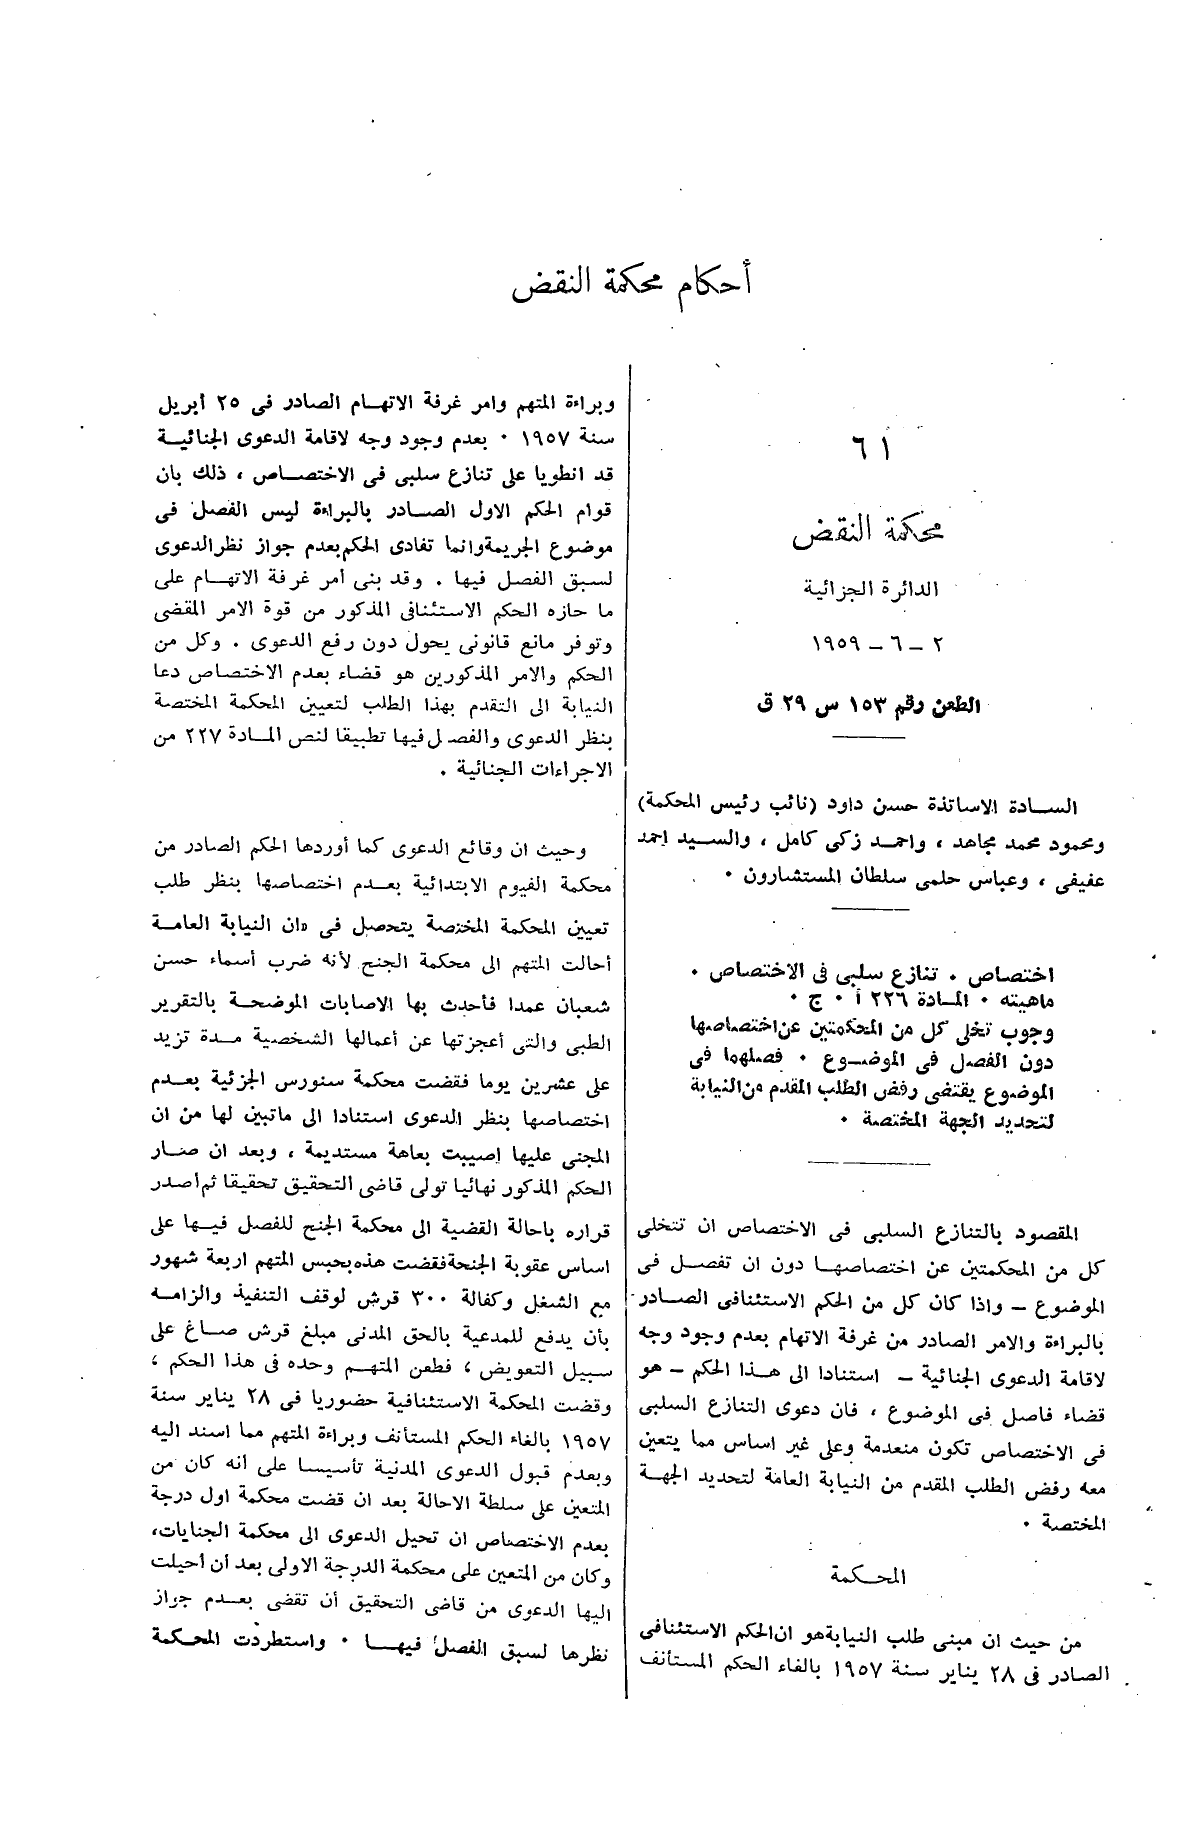 أحكام محكمة النقض
٦١
محكمة النقض
الدائرة الجزائية
٢ – ٦ – ١٩٥٩
الطعن رقم ١٥٣ س ٢٩ ق
الســادة الاساتذة حسن داود (نائب رئيس المحكمة)
ومحمود محمد مجاهد ، واحمـد زكى كامل ، والسـيد احمد
عفيفى ، وعباس حلمى سلطان المستشارون .
اختصاص . تنازع سلبى فى الاختصاص .
ماهيته . المـادة ٢٢٦ أ . ج .
وجوب تخلى كل من المحكمتين عن اختصاصها
دون الفصل فى الموضـوع . فصلهما فى
الموضوع يقتضى رفض الطلب المقدم من النيابة
لتحديد الجهة المختصة .
المقصود بالتنازع السلبى فى الاختصاص ان تتخلى
كل من المحكمتين عن اختصاصهـا دون ان تفصـل فى
الموضوع – واذا كان كل من الحكم الاستئنافى الصـادر
بالبراءة والامر الصادر من غرفة الاتهام بعدم وجود وجه
لاقامة الدعوى الجنائية – استنادا الى هـذا الحكم – هو
قضاء فاصل فى الموضوع ، فان دعوى التنازع السلبى
فى الاختصاص تكون منعدمة وعلى غير اساس مما يتعين
معه رفض الطلب المقدم من النيابة العامة لتحديد الجهـة
المختصة .
المحـكمة
من حيث ان مبنى طلب النيابة هو ان الحكم الاستئنافى
الصادر فى ٢٨ يناير سنة ١٩٥٧ بالغاء الحكم المستأنف
وبراءة المتهم وامر غرفة الاتهـام الصادر فى ٢٥ أبريل
سنة ١٩٥٧ . بعدم وجود وجه لاقامة الدعوى الجنائيـة
قد انطويا على تنازع سلبى فى الاختصـاص ، ذلك بان
قوام الحكم الاول الصـادر بالبراءة ليس الفصل فى
موضوع الجريمة وانما تفادى الحكم بعدم جواز نظر الدعوى
لسبق الفصل فيها . وقد بنى أمر غرفة الاتهـام على
ما حازه الحكم الاستئنافى المذكور من قوة الامر المقضى
وتوفر مانع قانونى يحول دون رفع الدعوى . وكل من
الحكم والامر المذكورين هو قضاء بعدم الاختصاص دعا
النيابة الى التقدم بهذا الطلب لتعيين المحكمة المختصة
بنظر الدعوى والفصل فيها تطبيقا لنص المـادة ٢٢٧ من
الاجراءات الجنائية .
وحيث ان وقائع الدعوى كما أوردها الحكم الصادر من
محكمة الفيوم الابتدائية بعـدم اختصاصها بنظر طلب
تعيين المحكمة المختصة يتحصل فى «ان النيابة العامـة
أحالت المتهم الى محكمة الجنح لأنه ضرب أسماء حسن
شعبان عمدا فأحدث بها الاصابات الموضحـة بالتقرير
الطبى والتى أعجزتها عن أعمالها الشخصية مـدة تزيد
على عشرين يوما فقضت محكمة سنورس الجزئية بعـدم
اختصاصها بنظر الدعوى استنادا الى ماتبين لها من ان
المجنى عليها اصيبت بعاهة مستديمة ، وبعد ان صـار
الحكم المذكور نهائيا تولى قاضى التحقيق تحقيقا ثم أصدر
قراره باحالة القضية الى محكمة الجنح للفصل فيـها على
اساس عقوبة الجنحة فقضت هذه بحبس المتهم اربعة شهور
مع الشغل وكفالة ٣٠٠ قرش لوقف التنفيذ والزامـه
بأن يدفع للمدعية بالحق المدنى مبلغ قرش صـاغ على
سبيل التعويض ، فطعن المتهـم وحده فى هذا الحكم ،
وقضت المحكمة الاستئنافية حضوريا فى ٢٨ يناير سنة
١٩٥٧ بالغاء الحكم المستأنف وبراءة المتهم مما اسند اليه
وبعدم قبول الدعوى المدنية تأسيسا على أنه كان من
المتعين على سلطة الاحالة بعد ان قضت محكمة اول درجة
بعدم الاختصاص ان تحيل الدعوى الى محكمة الجنايات،
وكان من المتعين على محكمة الدرجة الاولى بعد أن أحيلت
اليها الدعوى من قاضى التحقيق أن تقضى بعـدم جواز
نظرها لسبق الفصل فيهـا . واستطردت المحـكمة